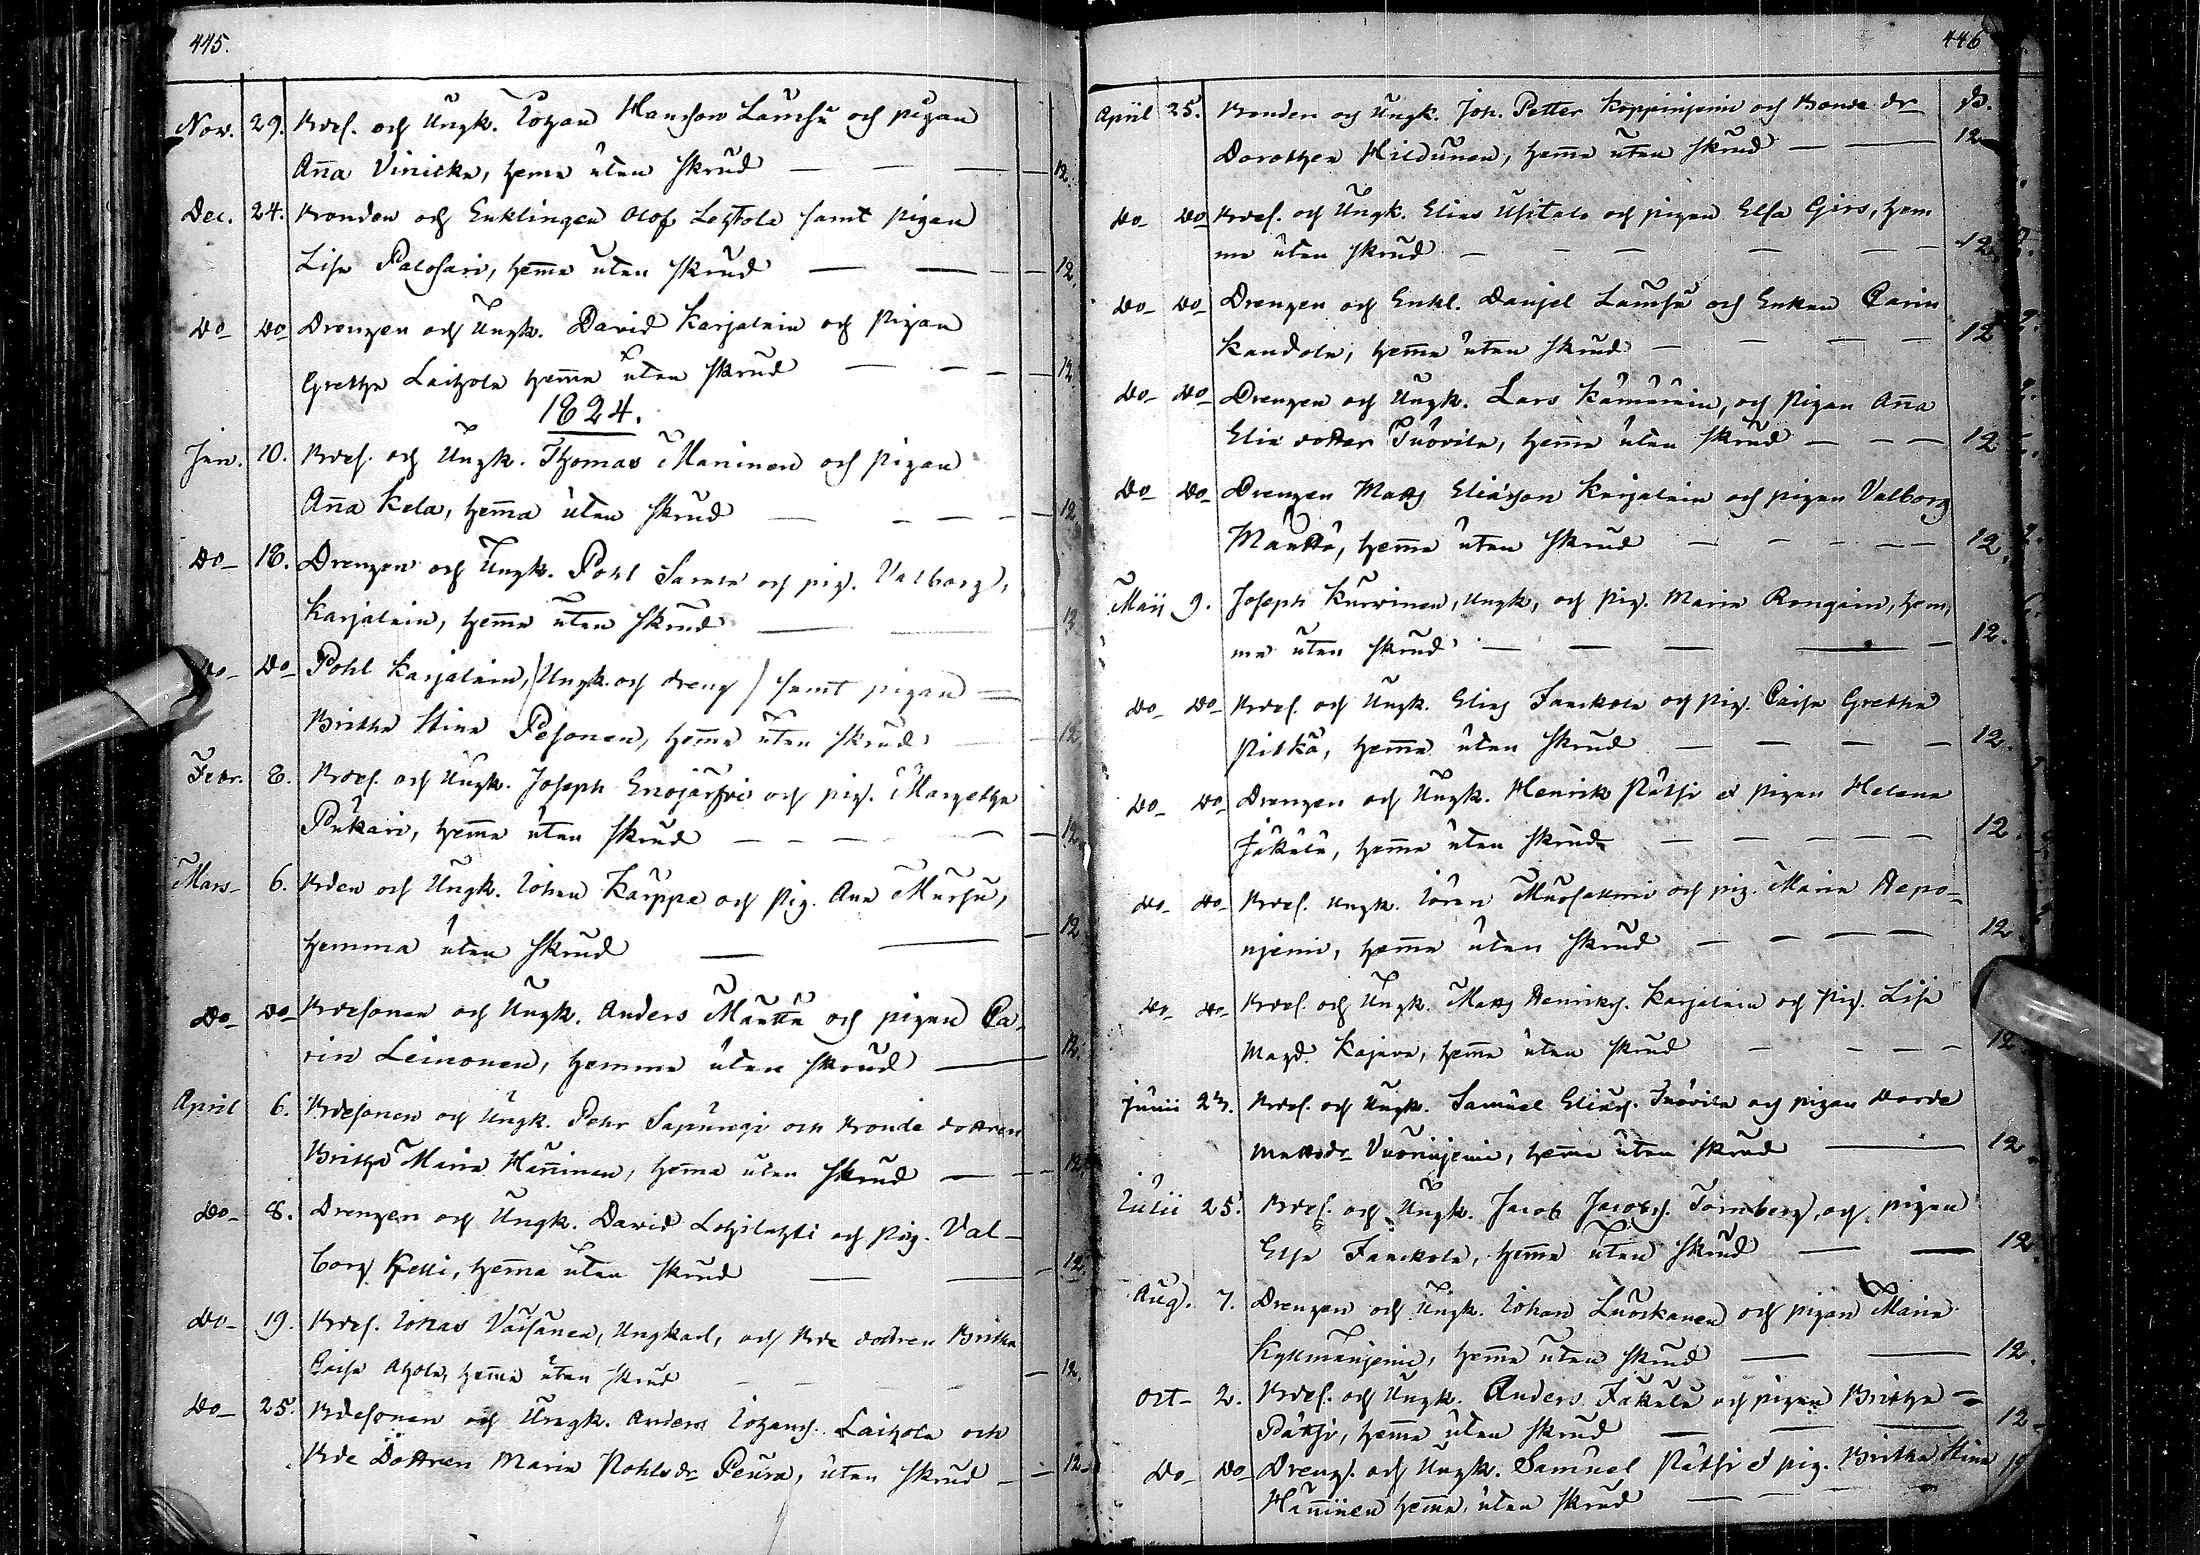 445.
Nov. 29. Bdes. och Ungk. Johan Hansson Lamsu och pigan
Anna Vinicka, hema utan skrud — — — 12.
Dec. 24. Bonden och Enklingen Olof Lehtola samt pigan
Lisa Palosari, hemma utan skrud — — 12.
Do Do Drengen och Ungk. David Karjalain och pigan
Gretha Laihola hemma utan skrud — — 12
1824.
Jan. 10. Bdes. och Ungk. Thomas Maninen och pigan
Anna Kela, hemma utan skrud — — — 12
Do 18. Drengen och Ungk. Pohl och pig. Valborg
Karjalain, hemma utan skrud — — 12
Do Do Pohl Karjalain, /Ungk. och dreng/ samt pigan
Britha Stina Pesonen, hemma utan skrud — 12.
Febr. 8. Bdes. och Ungk. Joseph Enojärfvi och pig. Margetha
Pukari, hemma utan skrud — — — 12
Mars 6. Bden och Ungk. Johan Karppa och pig. Ana Mursu,
hemma utan skrud — — 12
Do Do Bdesonen och Ungk. Anders Mantta och pigan Ca-
rin Leinonen, hemma utan skrud — 12.
April 6. Bdesonen och Ungk. Pehr Sapungi och Bonde dottren
Britha Maria Hänninen, hemma utan skrud — 12
Do 8. Drengen och Ungk. David Lehtilahti och pig. Val-
borg Kelli, hemma utan skrud — — 12.
Do 19. Bdes. Johas Väisänen, Ungkarl, och Bde dottren Britha
Caisa Ahola, hemma utan skrud — — 12.
Do 25. Bdesonen och Ungk. Anders Johanss. Laihola och
Bde Dottren Maria Pohlsdr Peura, utan skrud — 12.
446
April 25. Bonden og Ungk. Joh. Petter Koppinjemi och Bonde dr ß.
Dorothea Hildunen, hemma utan skrud — — 12
Do Do Bdes. och Ungk. Elias Usitalo och pigan Elsa Girs, hem
ma utan skrud — — — 12
Do Do Drengen och Enkl. Danjel Lamsu och Enkan Carin
Kandola, hemma utan skrud — — 12
Do Do Drengen och Ungk. Lars Kämäräin, och pigan Anna
Elia dotter Tuovila, hemma utan skrud — — 12
Do Do Drengen Matts Eliasson Karjalain och pigan Valborg
Mäntta, hemma utan skrud — — — 12.
Maji 9. Joseph Kurvinen, Ungk, och pig. Maria Rongain, hem,
ma utan skrud — — — 12.
Do Do Bdes. och Ungk. Elias Janckola och pig. Caisa Gretha
Pitkä, hemma utan skrud — — — 12.
Do Do Drengen och Ungk. Henrik Pätsi et pigan Helena
Jäkälä, hemma utan skrud — — — 12.
Do Do Bdes. Ungk. Jöran Mursuniemi och pig. Maria Aepo-
njemi, hemma utan skrud — — — 12.
Do Do Bdes. och Ungk. Matts Henrikss. Karjalain och pig. Lisa
Magd. Kajava, hemma utan skrud — — 12.
Junii 27. Bdes. och Ungk. Samuel Eliass. Tuovila och pigan Dorde
Mattsdr Vuorinjemi, hemma utan skrud — 12.
Julii 25. Bdes. och Ungk. Jacob Jacobss. Tornberg, och pigan
Elsa Janckola, hemma utan skrud — — 12.
Aug. 7. Drengen och Ungk. Johan Luoskanen och pigan Maria
Kyllmänjemi, hemma utan skrud — — 12.
Oct 2. Bdes. och Ungk. Anders Jäkälä och pigan Britha
Pätsi, hemma utan skrud — — — 12
Do Do Drengs. och Ungk. Samuel Pätsi et pig. Britha Stina
Hänninen hemma utan skrud — — —